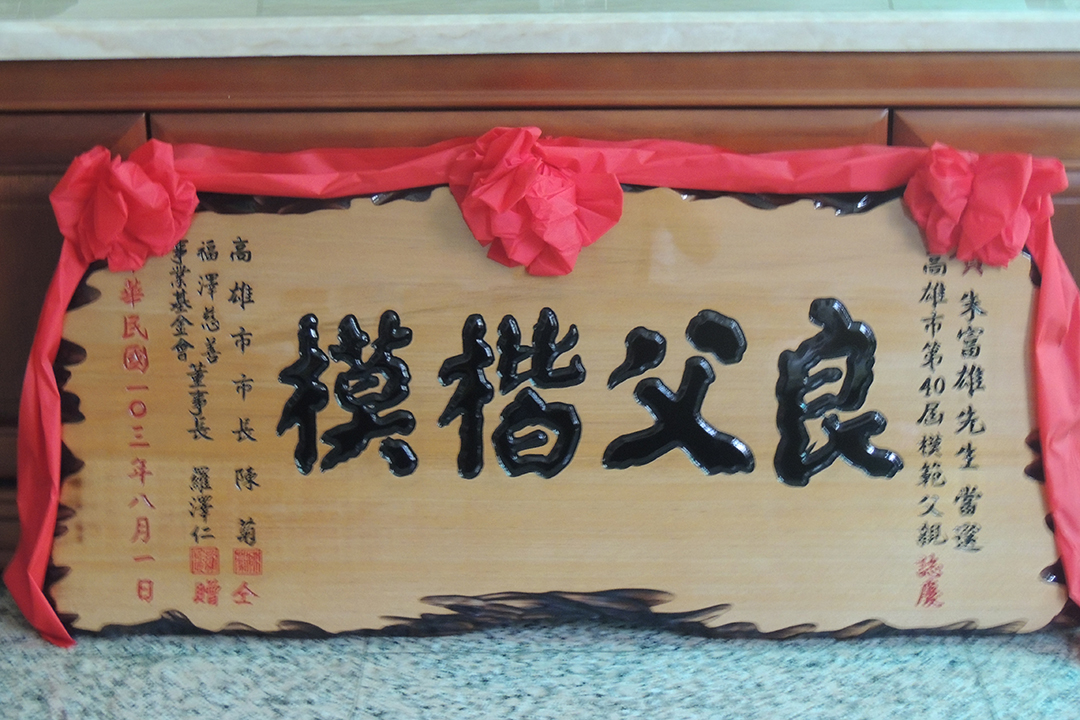 賀朱富雄先生當選
高雄市第40屆模範父親誌慶
良父楷模
高雄市市長陳菊 仝
福澤慈善事業基金會董事長羅澤仁 贈
華民國一0三年八月一日